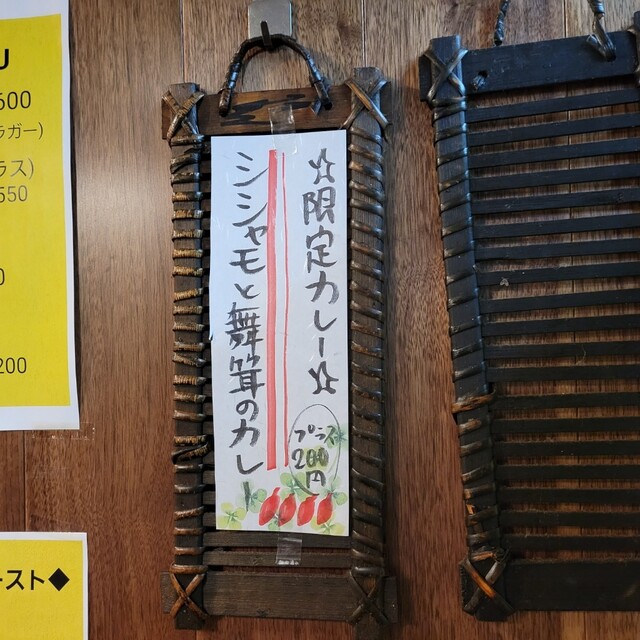 ☆限定カレー☆
プラス
200
円
シシャモと舞茸のカレー
U
600
ラガー)
ラス)
550
0
200
ースト◆